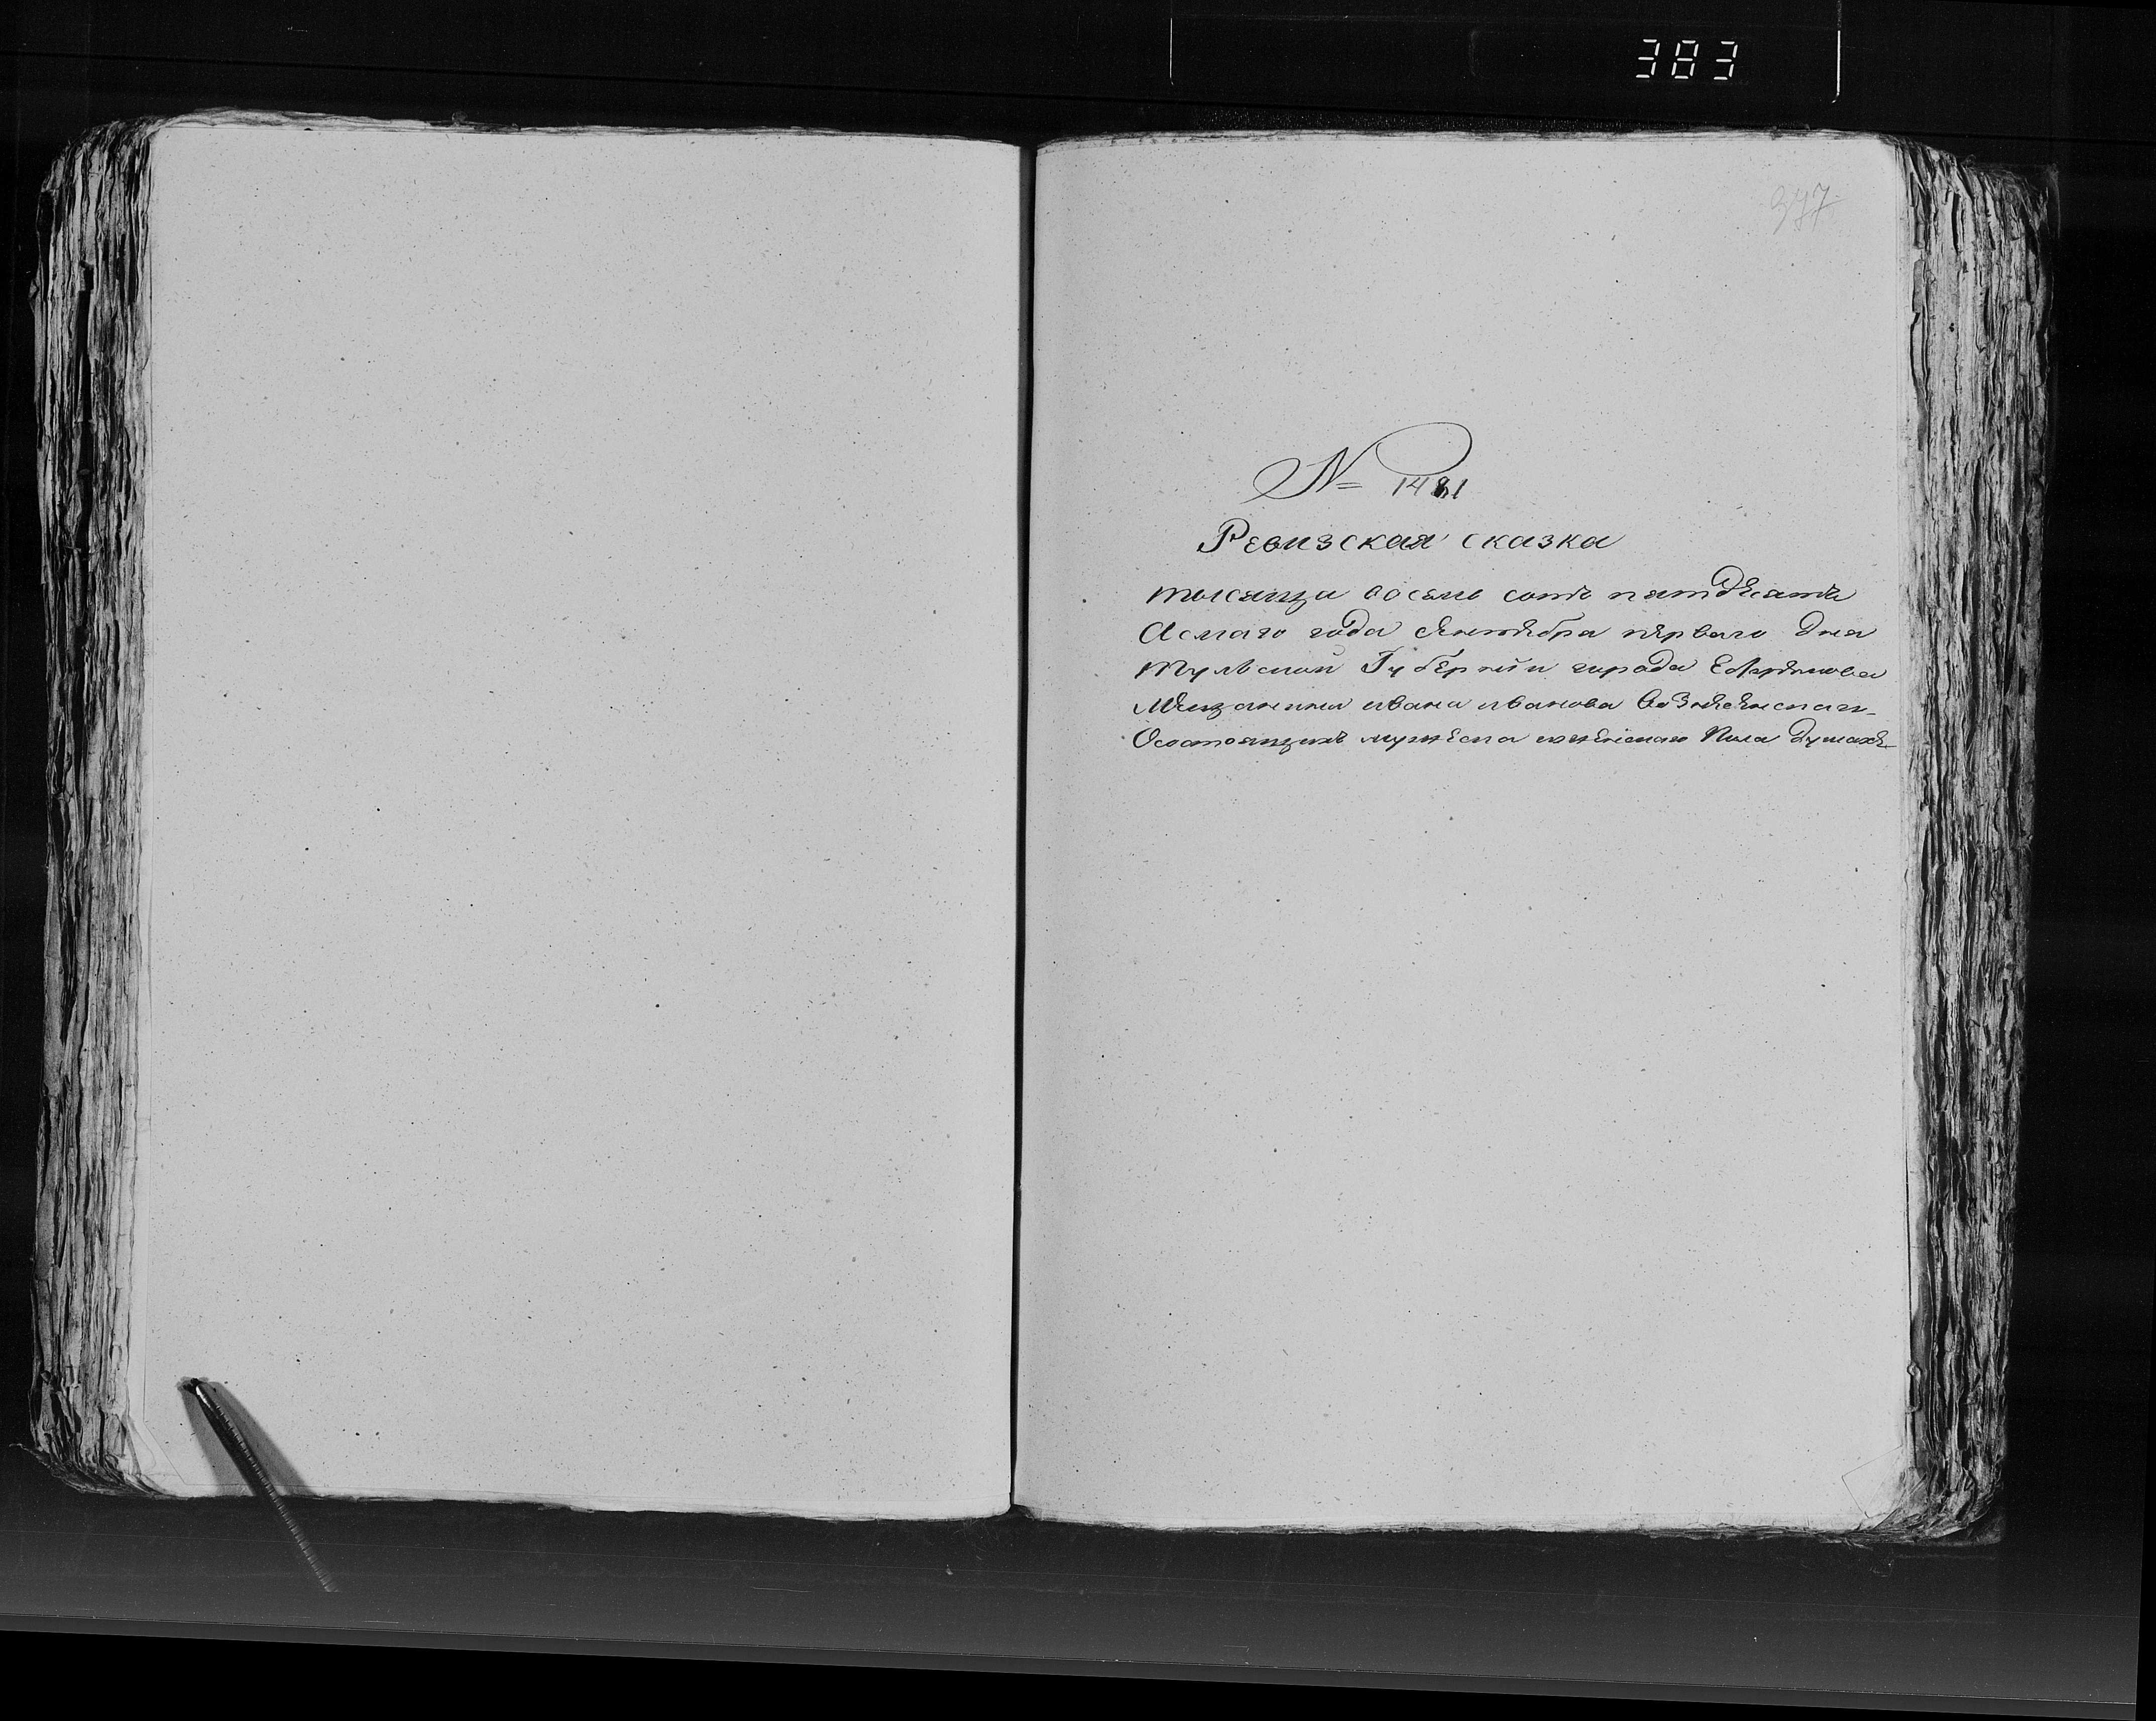 383
377
№ 1481
Ревизская сказка
тысящи восемь сотъ пятдесятъ
Асмаго года Сентября перваго дня
тульской Губернии города Ефремова
Мещанина ивана иванова
Осостоящихъ мужеска иженскаго Пола душахъ